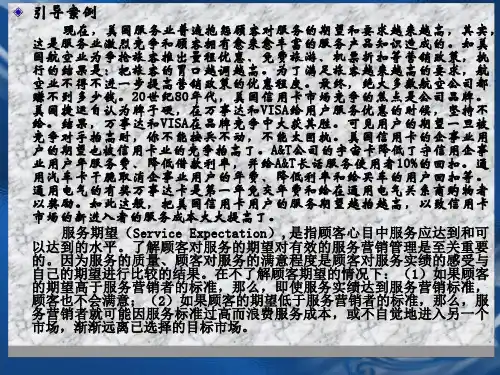 引导案例
现在，美国服务业普遍抱怨顾客对服务的期望和要求越来越高，其实，
这是服务业激烈竞争和顾客拥有愈来愈丰富的服务产品知识造成的。如美
国航空业为争抢旅客推出里程优惠、免费旅游、机票折扣等营销政策，执
行的结果是：把旅客的胃口越调越高。为了满足旅客越来越高的要求，航
空业不得不进一步提高营销政策的优惠程度。最终，绝大多数航空公司都
赚不到多少钱。20世纪80年代，美国信用卡市场竞争的焦点是公司品牌。
美国捷运自认为牌子硬，在万事达和VISA给用户服务优惠的时候，坚持不
给，结果，万事达和VISA在品牌竞争中大获其胜。可见用户的期望一旦被
竞争对手抬高时，你不能按兵不动，不能太固执。美国信用卡的企事业用
户的期望也被信用卡业的竞争抬高了。A&T公司的宇宙卡降低了守信用企事
业用户年服务费、降低借款利率，并给A&T长话服务使用者10%的回扣。通
用汽车卡干脆取消企事业用户的年费、降低利率和给买车的用户回扣等。
通用电气的有奖万事达卡是第一年免交年费和给在通用电气关系商购物者
以奖励。如此这般，把美国信用卡用户的服务期望越抬越高，以致信用卡
市场的新进入者的服务成本大大提高了。
服务期望（Service Expectation）,是指顾客心目中服务应达到和可
以达到的水平。了解顾客对服务的期望对有效的服务营销管理是至关重要
的。因为服务的质量、顾客对服务的满意程度是顾客对服务实绩的感受与
自己的期望进行比较的结果。在不了解顾客期望的情况下：（1）如果顾客
的期望高于服务营销者的标准，那么，即使服务实绩达到服务营销标准，
顾客也不会满意；（2）如果顾客的期望低于服务营销者的标准，那么，服
务营销者就可能因服务标准过高而浪费服务成本，或不自觉地进入另一个
市场，渐渐远离已选择的目标市场。